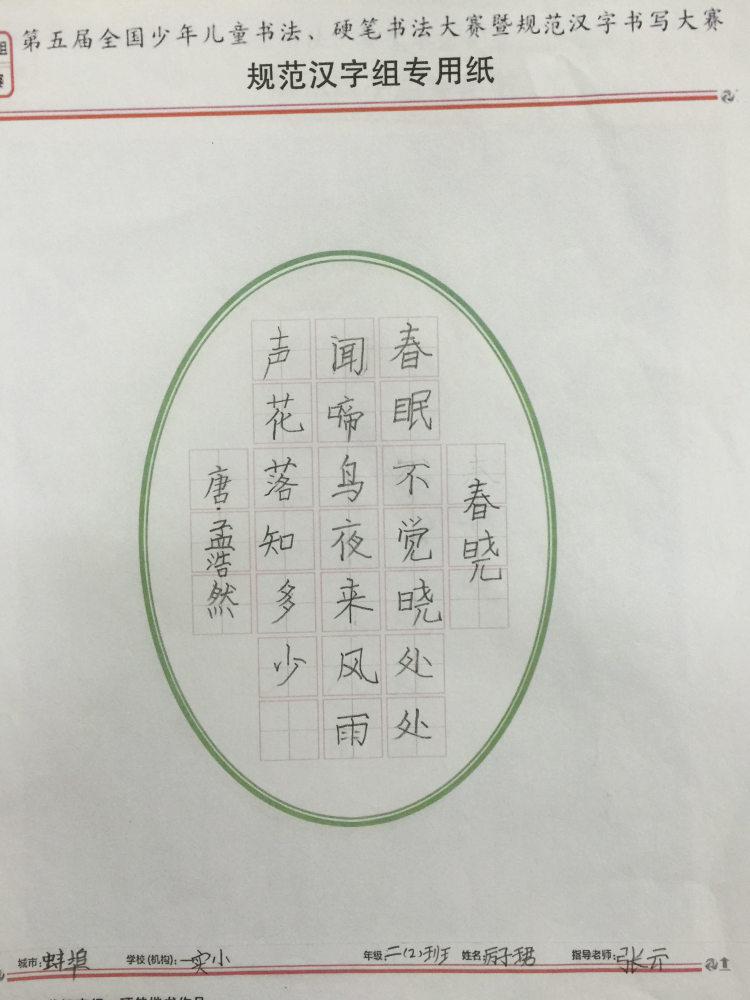 第五届全国少年儿童书法、硬笔书法大赛暨规范汉字书写大赛
规范汉字组专用纸
春晓
春眠不觉晓处处
闻啼鸟夜来风雨
声花落知多少
唐·孟浩然
城市:蚌埠 学校(机构):一实小 年级:二(2)班 姓名: 指导老师:张云